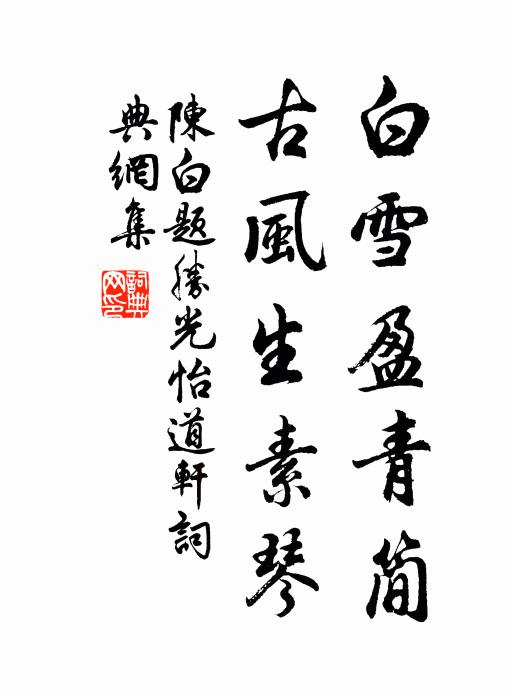 白雪盈青簡
古風生素琴
陳白題勝光怡道軒詞
典網集
詞典
网印